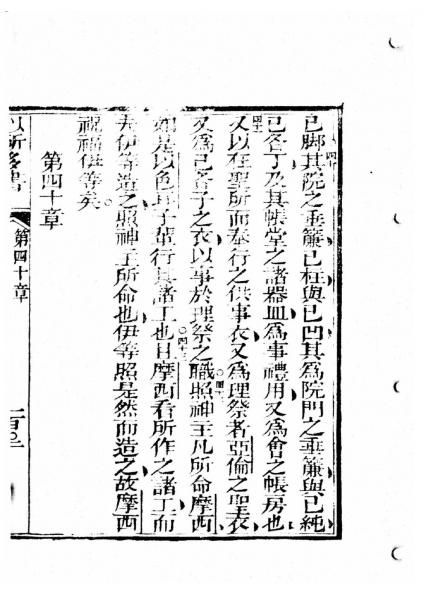 已脚其院之垂簾已柱與已凹其為院門之垂簾與已純
已各丁及其帳堂之諸器皿為事禮用又為會之帳房也
又以在聖所而奉行之供事衣又為理祭者亞倫之聖衣
又為已各子之衣以事於理祭之職照神主凡所命摩西
如是以色耳子輩行其諸工也
摩西看所作之諸工而
夫伊等造之照神主所命也伊等照是然而造之故摩西
祝福伊等矣
第四十章
第四十章